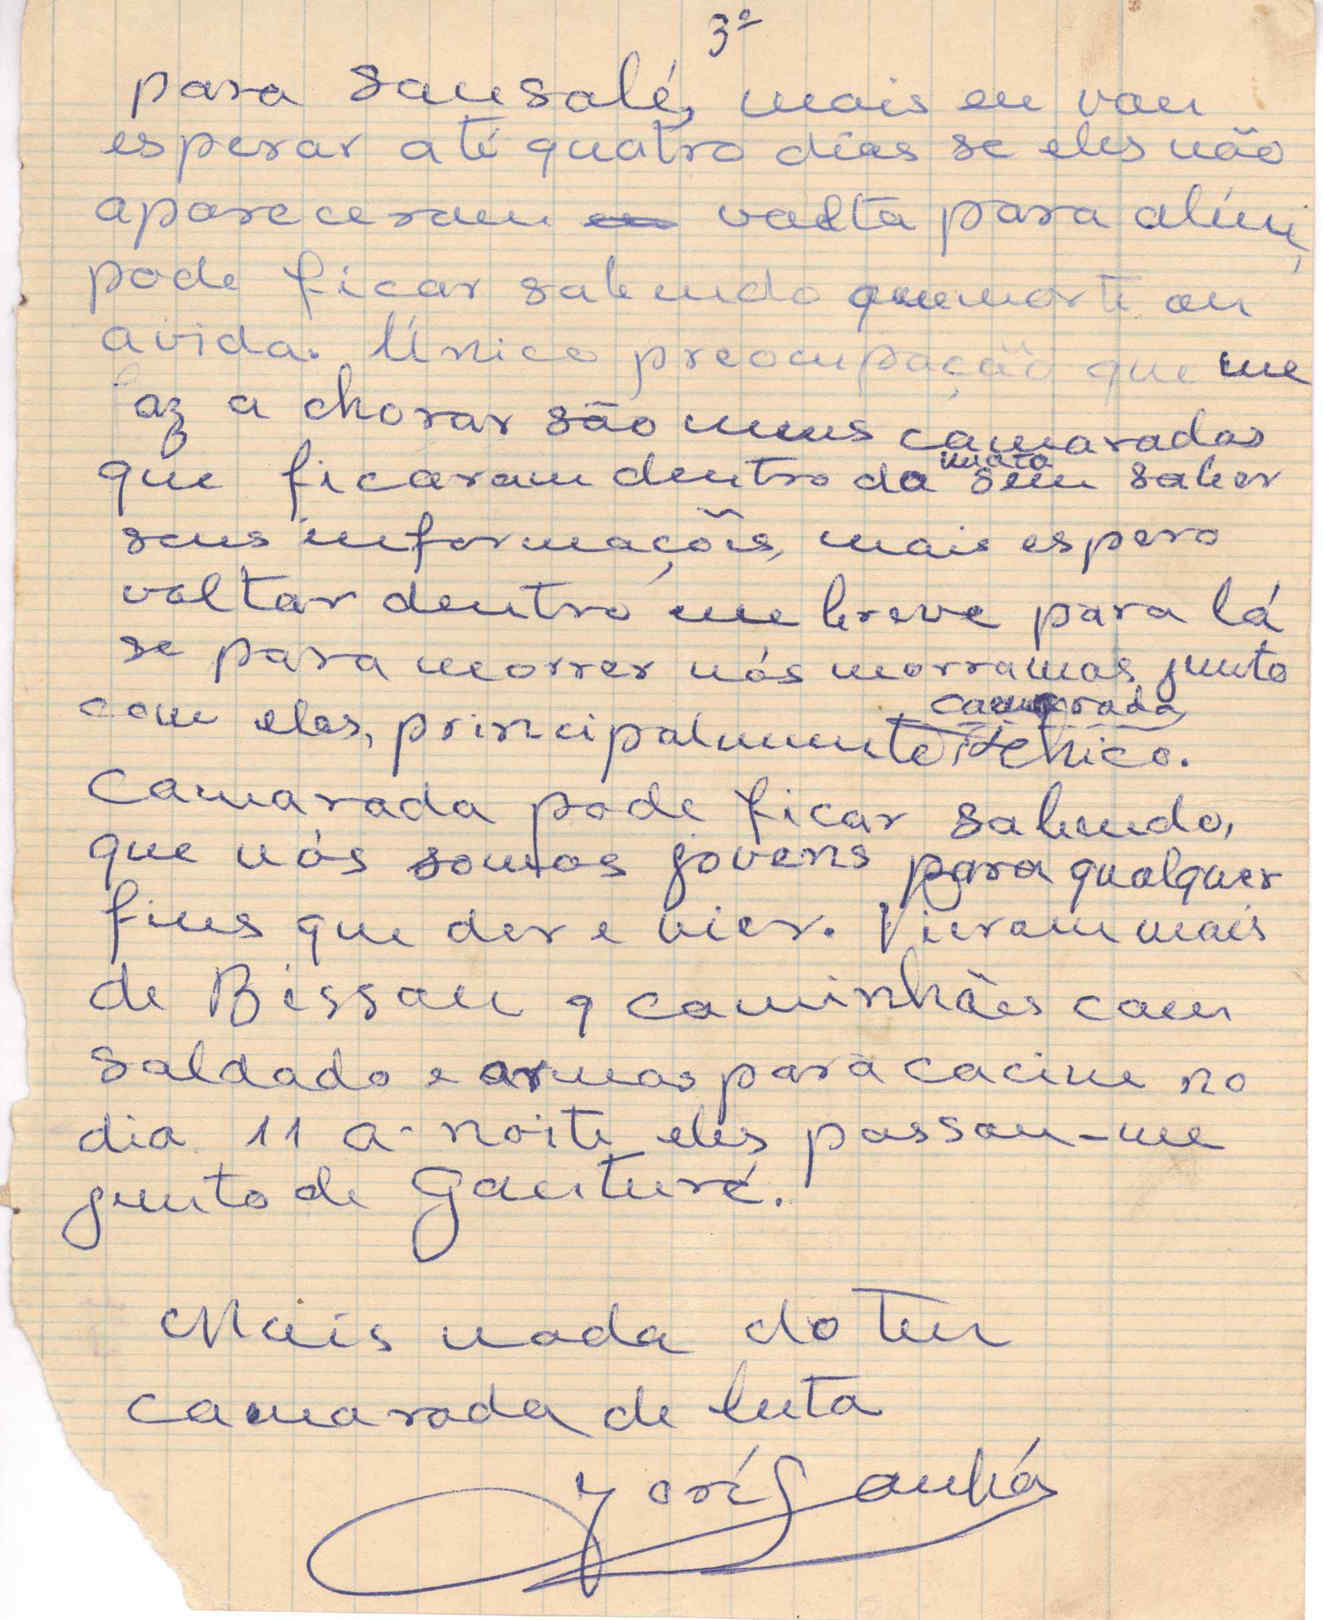 3º
para Sansalé, mais eu vou
esperar até quatro dias se eles não
apareceram volta para
pode ficar sabendo que morte ou
avida. Único preocupação que me
az a chorar são meus camaradas
que ficaram dentro da mata sem saber
seus informações, mais espero
voltar dentro me breve para lá
se para morrer nós morramos junto
com eles, principalmente camarada Tchico.
Camarada pode ficar sabendo,
que nós somos jovens para qualquer
fins que der e vier. Vieram mais
de Bissau 9 caminhões com
saldado e armas para cacine no
dia 11 a noite eles passou-me
junto de Ganturé.
Mais nada do teu
camarada de luta
José Sanhá